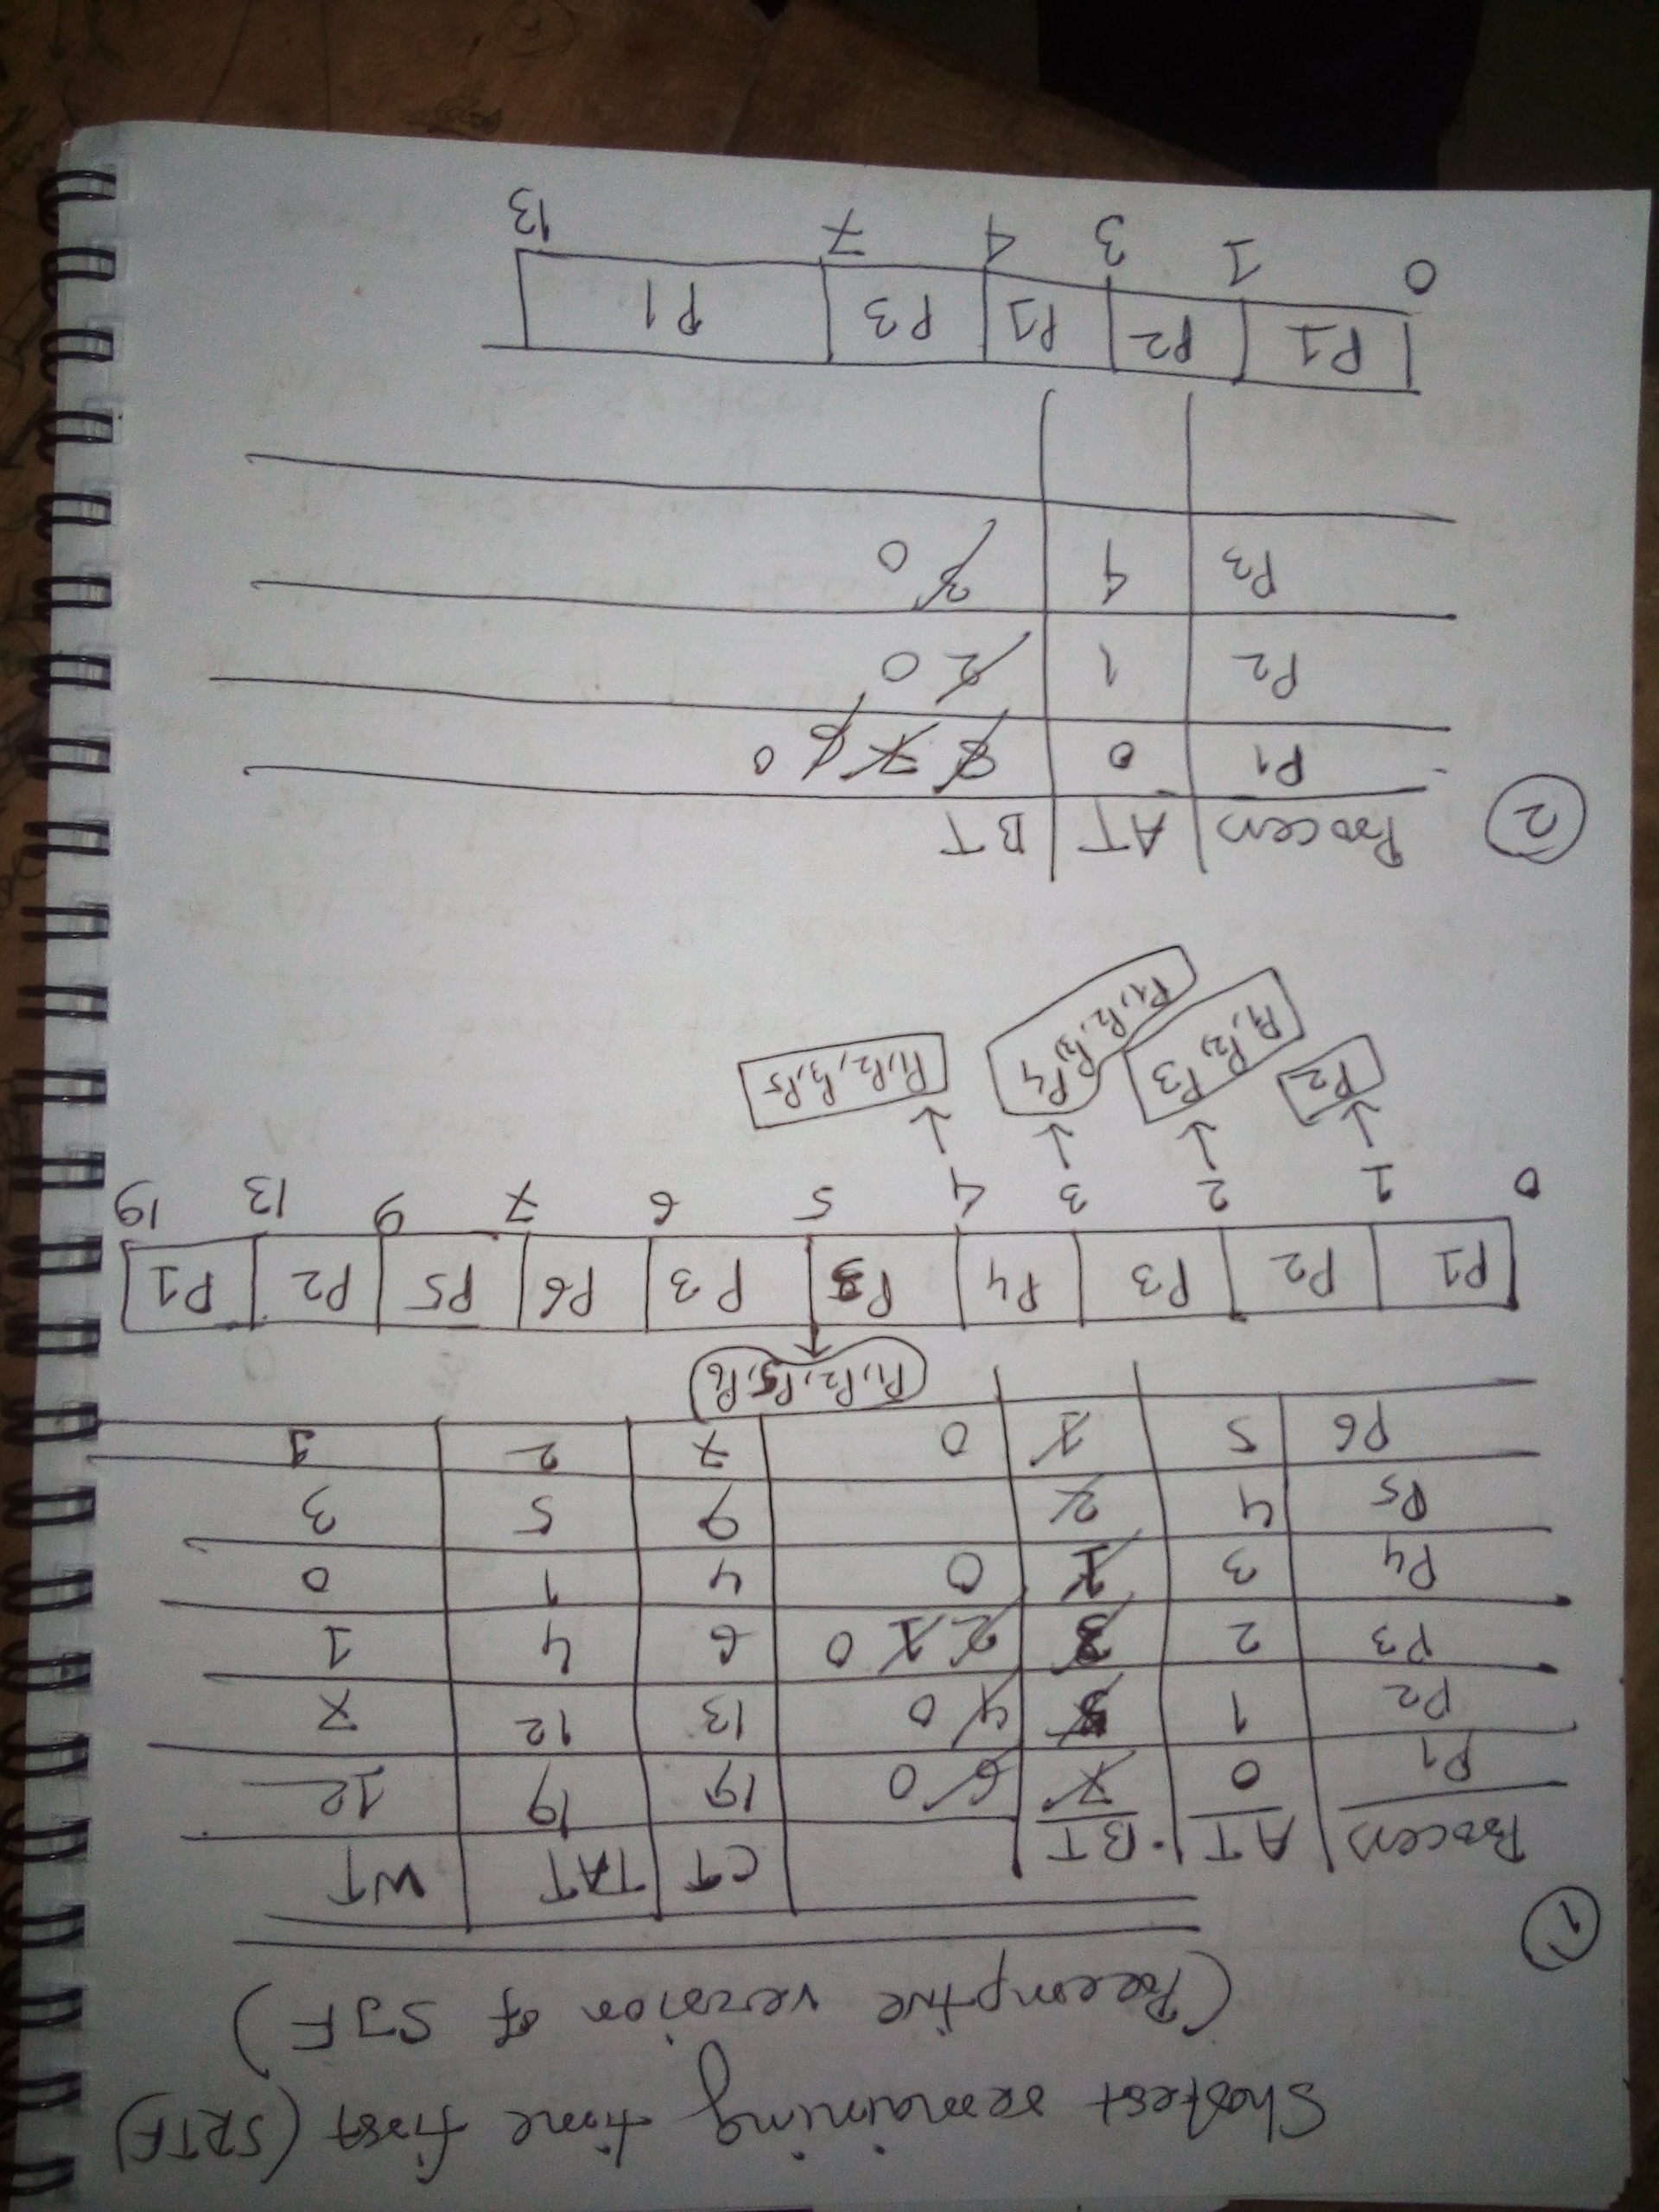 Shortest remaining time first (SRTF)
(Preemptive version of SJF)
1
Process AT BT CT TAT WT
P1 0 7 6 0 19 19 12
P2 1 5 4 0 13 12 7
P3 2 3 2 1 0 6 4 1
P4 3 1 0 4 1 0
P5 4 2 9 5 3
P6 5 1 0 7 2 1
P1, P2, P5, P6
P1 P2 P3 P4 P3 P3 P6 P5 P2 P1
0 1 2 3 4 5 6 7 9 13 19
P2
P1, P2, P3
P1, P2, P3, P4
P1, P2, P3, P5
2
Process AT BT
P1 0 8 7 6 0
P2 1 2 0
P3 4 3 0
P1 P2 P1 P3 P1
0 1 3 4 7 13